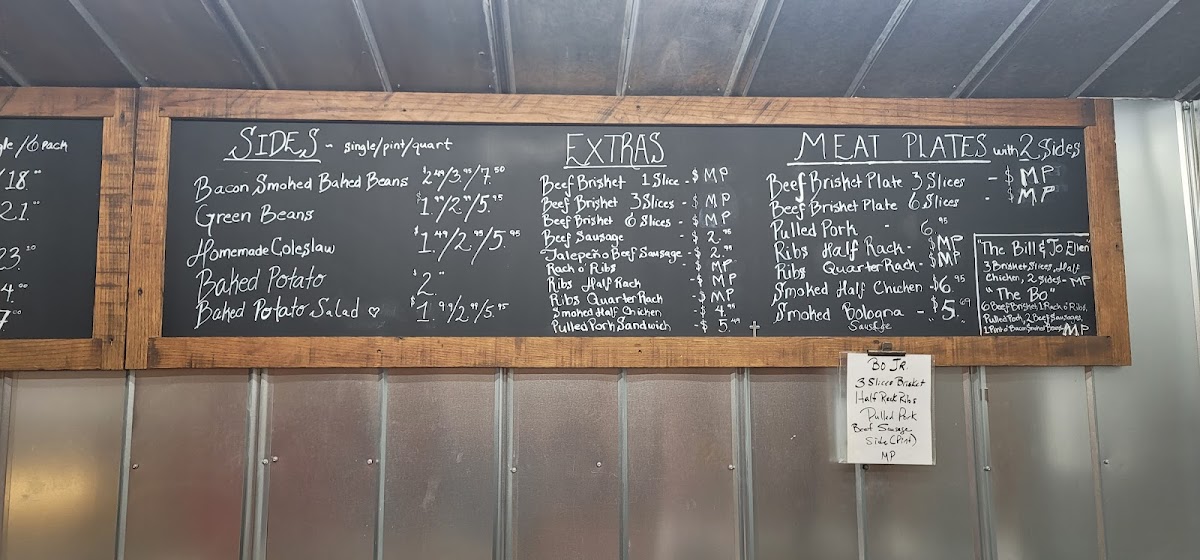 /6 Pack
/18.
21.
23.
4.00
7.00
SIDES - single/pint/quart
Bacon Smoked Baked Beans $2.49/3.95/7.50
Green Beans $1.49/2.95/5.95
Homemade Coleslaw $1.49/2.95/5.95
Baked Potato $2.
Baked Potato Salad ♡ $1.99/2.95/5.95
EXTRAS
Beef Brisket 1 Slice - $ MP
Beef Brisket 3 Slices - $ MP
Beef Brisket 6 Slices - $ MP
Beef Sausage - $ 2.95
Jalapeño Beef Sausage - $ 2.99
Rack o' Ribs - $ MP
Ribs Half Rack - $ MP
Ribs Quarter Rack - $ MP
Smoked Half Chicken - $ 4.99
Pulled Pork Sandwich - $ 5.49
MEAT PLATES with 2 Sides
Beef Brisket Plate 3 Slices - $ MP
Beef Brisket Plate 6 Slices - $ MP
Pulled Pork - 6.95
Ribs Half Rack - $ MP
Ribs Quarter Rack - $ MP
Smoked Half Chicken - $6.95
Smoked Bologna - $5.69
Sausage
"The Bill & Jo Ellen"
3 Brisket Slices, Half
Chicken, 2 Sides - MP
"The Bo"
6 Beef Brisket, 1 Rack o' Ribs,
Pulled Pork, 2 Beef Sausages,
1 Pint o' Bacon Smoked Beans MP
Bo Jr.
3 Slices Brisket
Half Rack Ribs
Pulled Pork
Beef Sausage
Side (Pint)
MP